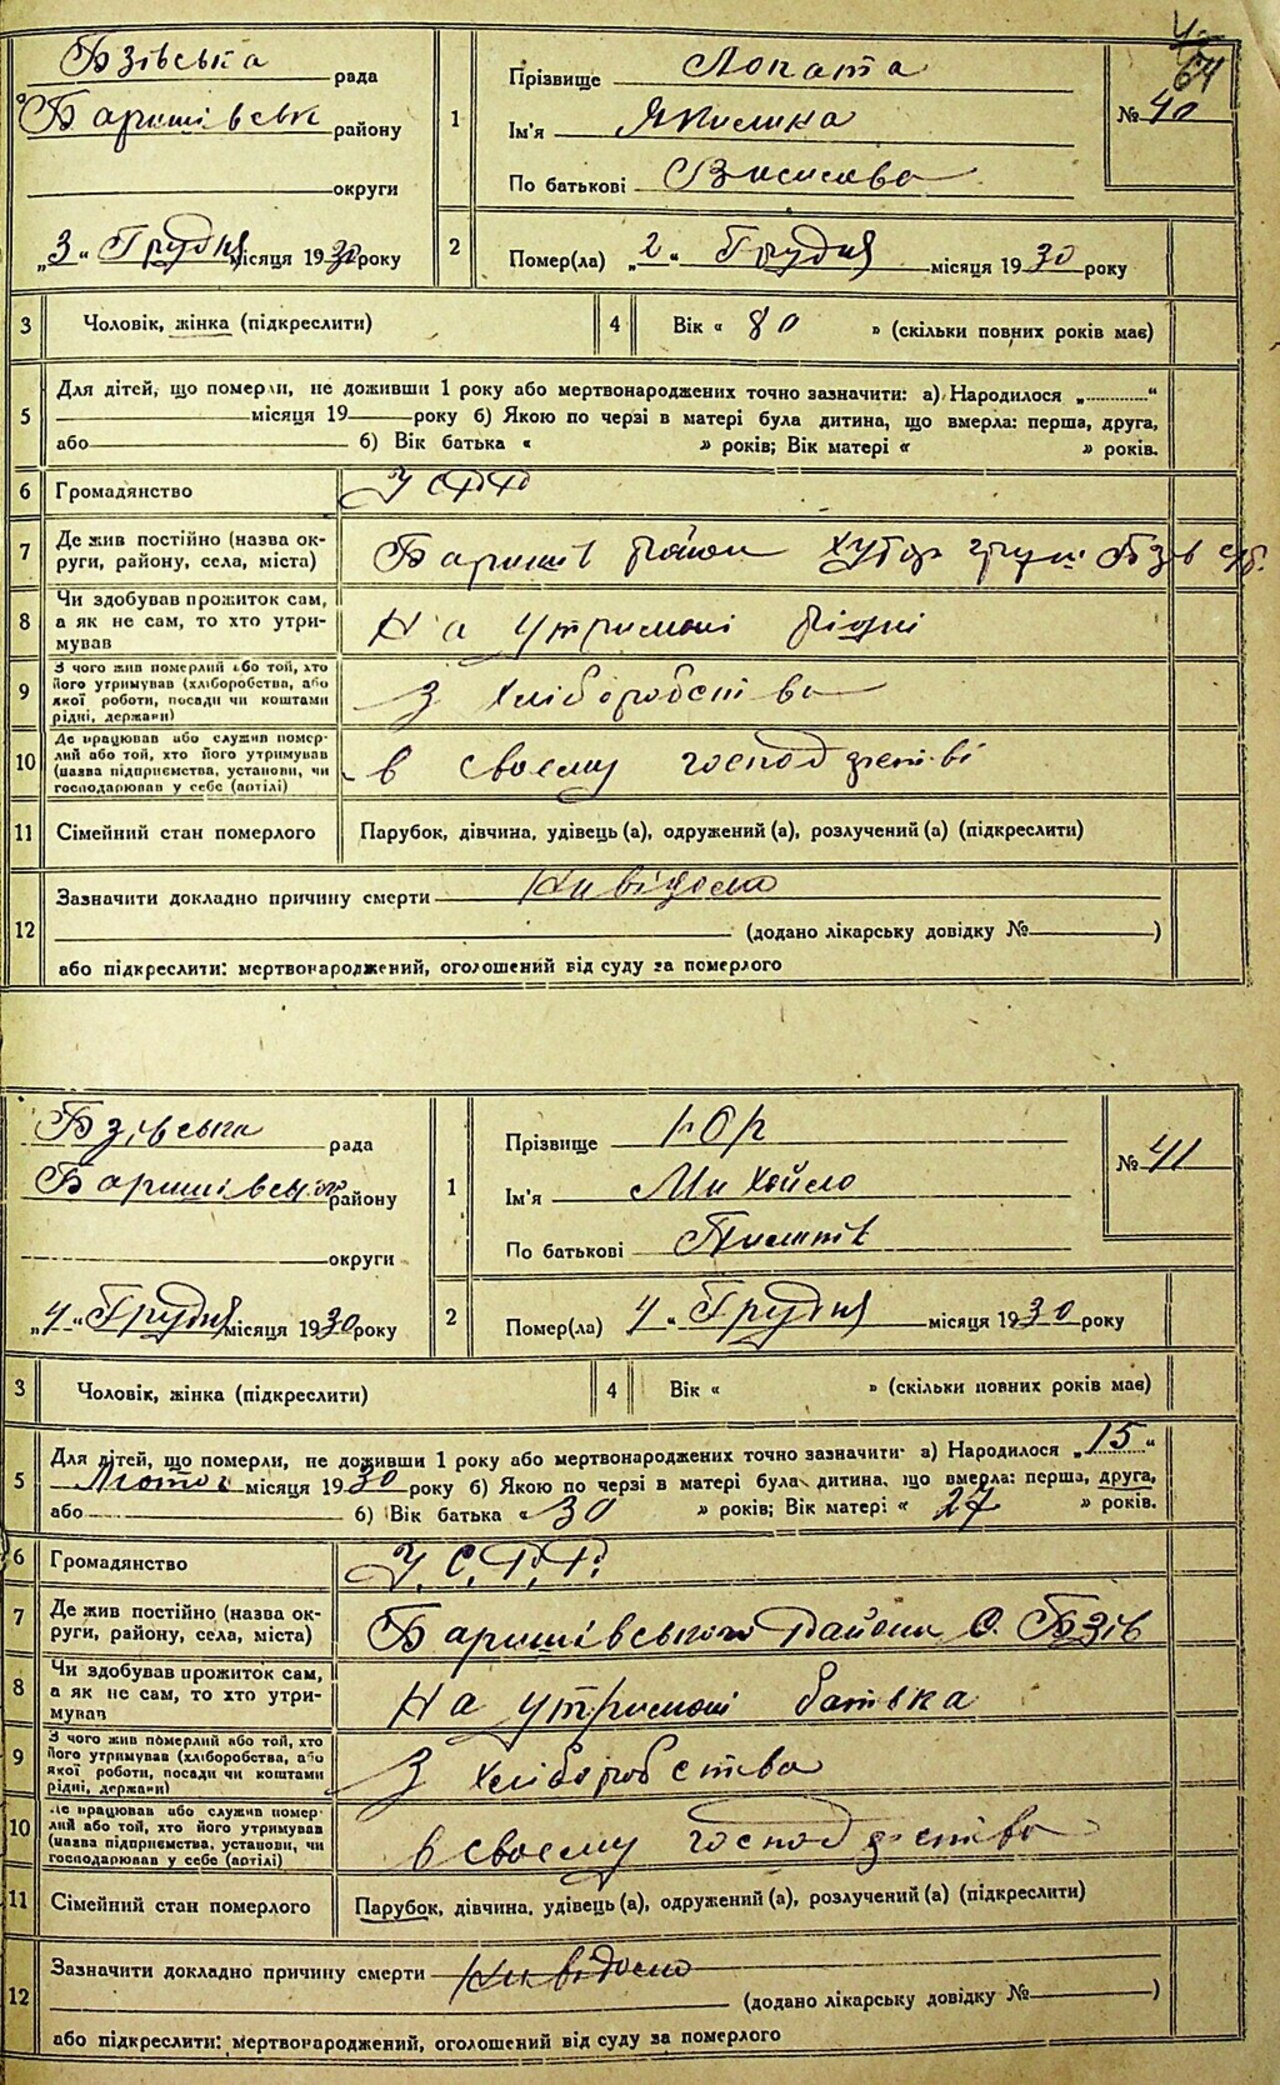 64
Бзівська рада
Баришівськ району
округи
„3“ Грудня місяця 1930 року
1
Прізвище Лопата
Ім'я Якилина
По батькові
№ 40
2
Помер(ла) „2“ Грудня місяця 1930 року
3 Чоловік, жінка (підкреслити)
4 Вік « 80 » (скільки повних років має)
5
Для дітей, що померли, не доживши 1 року або мертвонароджених точно зазначити: а) Народилося „ “
місяця 19 року б) Якою по черзі в матері була дитина, що вмерла: перша, друга,
або б) Вік батька « » років; Вік матері « » років.
6 Громадянство УСРР
7
Де жив постійно (назва ок-
руги, району, села, міста)
Баришів район хутор Бзів
8
Чи здобував прожиток сам,
а як не сам, то хто утри-
мував
На утримані рідні
9
З чого жив померлий або той, хто
його утримував (хліборобства, або
якої роботи, посади чи коштами
рідні, держави)
З хліборобства
10
Де працював або служив помер-
лий або той, хто його утримував
(назва підприємства, установи, чи
господарював у себе (артілі)
в своєму господарстві
11 Сімейний стан померлого Парубок, дівчина, удівець (а), одружений (а), розлучений (а) (підкреслити)
12
Зазначити докладно причину смерти Невідома
(додано лікарську довідку № )
або підкреслити: мертвонароджений, оголошений від суду за померлого
Бзівська рада
Баришівськ району
округи
„4“ Грудня місяця 1930 року
1
Прізвище
Ім'я Михайло
По батькові Пилипів
№ 41
2
Помер(ла) 4 “ Грудня місяця 1930 року
3 Чоловік, жінка (підкреслити)
4 Вік « » (скільки повних років має)
5
Для дітей, що померли, не доживши 1 року або мертвонароджених точно зазначити: а) Народилося „ 15 “
Лютого місяця 1930 року б) Якою по черзі в матері була дитина, що вмерла: перша, друга,
або б) Вік батька « 30 » років; Вік матері « 27 » років.
6 Громадянство У.С.Р.Р.
7
Де жив постійно (назва ок-
руги, району, села, міста)
Баришівського Району С. Бзів
8
Чи здобував прожиток сам,
а як не сам, то хто утри-
мував
На утримані батька
9
З чого жив померлий або той, хто
його утримував (хліборобства, або
якої роботи, посади чи коштами
рідні, держави)
З хліборобства
10
Де працював або служив помер-
лий або той, хто його утримував
(назва підприємства, установи, чи
господарював у себе (артілі)
в своєму господарстві
11 Сімейний стан померлого Парубок, дівчина, удівець (а), одружений (а), розлучений (а) (підкреслити)
12
Зазначити докладно причину смерти Невідомо
(додано лікарську довідку № )
або підкреслити: мертвонароджений, оголошений від суду за померлого